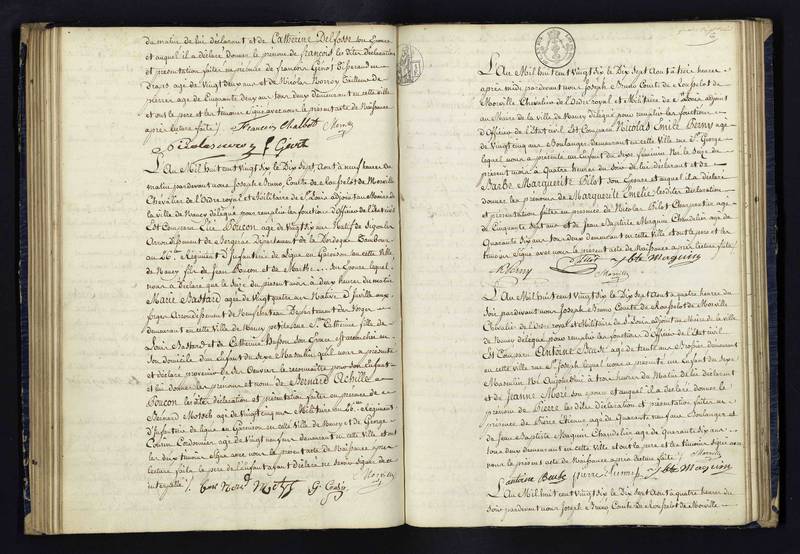 du matin de lui déclarant et de Catherine Delfosse son Epouse
et auquel il a déclaré donner le prénom de françois les dites déclaration
et présentation faites en présence de françois
Draps agé de Vingt deux ans et de Nicolas Tailleur de
pierre agé de Cinquante deux ans tous deux demeurant en cette ville
et ont le père et les témoins signé avec nous le présent acte de Naissance
après lecture faite /.
François Chalbot
L'An Mil huit cent Vingt Six le Dix Sept Aout à neuf heures du
matin pardevant nous Joseph Bruno Comte de Rousselot de Morville
Chevalier de l'ordre royal et Militaire de St Louis adjoint au Maire de
la ville de Nancy délégué pour remplir les fonctions d'Officier de l'état civil
Est Comparu Elie Boucon agé de Vingt Six ans Natif de Sigoulès
Arrondissement de Bergerac Département de la Dordogne Tambour
au Régiment d'Infanterie de Ligne en Garnison en cette ville
de Nancy fils de Jean Boucon et de Marthe son Epouse lequel
nous a déclaré que le Seize du présent mois à deux heures du matin
Marie Bastard agée de Vingt quatre ans Native d'
Arrondissement de Neufchateau Département des Vosges
demeurant en cette ville de Nancy Ste Catherine fille de
Louis Bastard et de Catherine son Epouse est accouchée en
son domicile d'un Enfant du Sexe Masculin qu'il nous a présenté
et déclaré provenir de Ses Oeuvres le reconnaître pour son Enfant
et lui donner les prénoms et nom de Bernard Achille
Boucon les dites déclaration et présentation faites en présence de
Bernard agé de vingt cinq ans Militaire au Régiment
d'Infanterie de ligne en Garnison en cette ville de Nancy et de George
Cordonnier agé de vingt neuf ans demeurant en cette ville et ont
les deux témoins signé avec nous le présent acte de Naissance après
lecture faite le père de l'enfant ayant déclaré ne savoir signer de ce
interpellé /.
L'An Mil huit cent Vingt Six le Dix Sept Aout à trois heures
après midi pardevant nous Joseph Bruno Comte de Rousselot de
Morville Chevalier de l'Ordre royal et Militaire de St Louis adjoint
au Maire de la ville de Nancy délégué pour remplir les fonctions
d'Officier de l'état civil Est Comparu Nicolas Emile Berny agé
de Vingt cinq ans Boulanger demeurant en cette Ville rue St George
lequel nous a présenté un Enfant du Sexe féminin Né le Seize du
présent mois à Quatre heures du Soir de lui déclarant et de
Barbe Marguerite Pilot son Epouse et auquel il a déclaré
donner les prénoms de Marguerite Emelie les dites déclaration
et présentation faites en présence de Nicolas Pilot Charpentier agé
de Cinquante huit ans et de Jean Baptiste Maguin Chandelier agé de
Quarante Six ans tous deux demeurant en cette Ville et ont le père et les
témoins signé avec nous le présent acte de Naissance après lecture faite /.
Berny Pillot jbte Maguin
L'An Mil huit cent Vingt Six le Dix Sept Aout à quatre heures du
Soir pardevant nous Joseph Bruno Comte de Rousselot de Morville
Chevalier de l'Ordre royal et Militaire de St Louis adjoint au Maire de la ville
de Nancy délégué pour remplir les fonctions d'Officier de l'état civil
Est Comparu Antoine Beuse agé de trente ans demeurant
en cette ville rue St Joseph lequel nous a présenté un Enfant du Sexe
Masculin Né Aujourd'hui à trois heures du Matin de lui déclarant
et de Jeanne Moré son épouse et auquel il a déclaré donner le
prénom de Pierre les dites déclaration et présentation faites en
présence de Pierre Etienne agé de Quarante neuf ans Boulanger et
de Jean Baptiste Maguin Chandelier agé de Quarante Six ans
tous deux demeurant en cette Ville et ont le père et les témoins signé avec
nous le présent acte de Naissance après lecture faite /.
antoine Beuse pierre Etienne jbte Maguin
L'An Mil huit cent Vingt Six le Dix Sept Aout à quatre heures du
Soir pardevant nous Joseph Bruno Comte de Rousselot de Morville